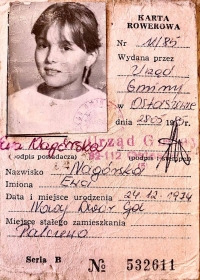 KARTA
ROWEROWA
Nr 141/85
Wydana przez
Urząd
Gminy
w Ostaszewie
dnia 28 05 1985
(podpis posiadacza)
(podpis
Nazwisko Nagórska
Imiona Ewa
Data i miejsce urodzenia 24.12.1974
Nowy Dwór Gd.
Miejsce stałego zamieszkania
Palczewo
Seria B № 532611